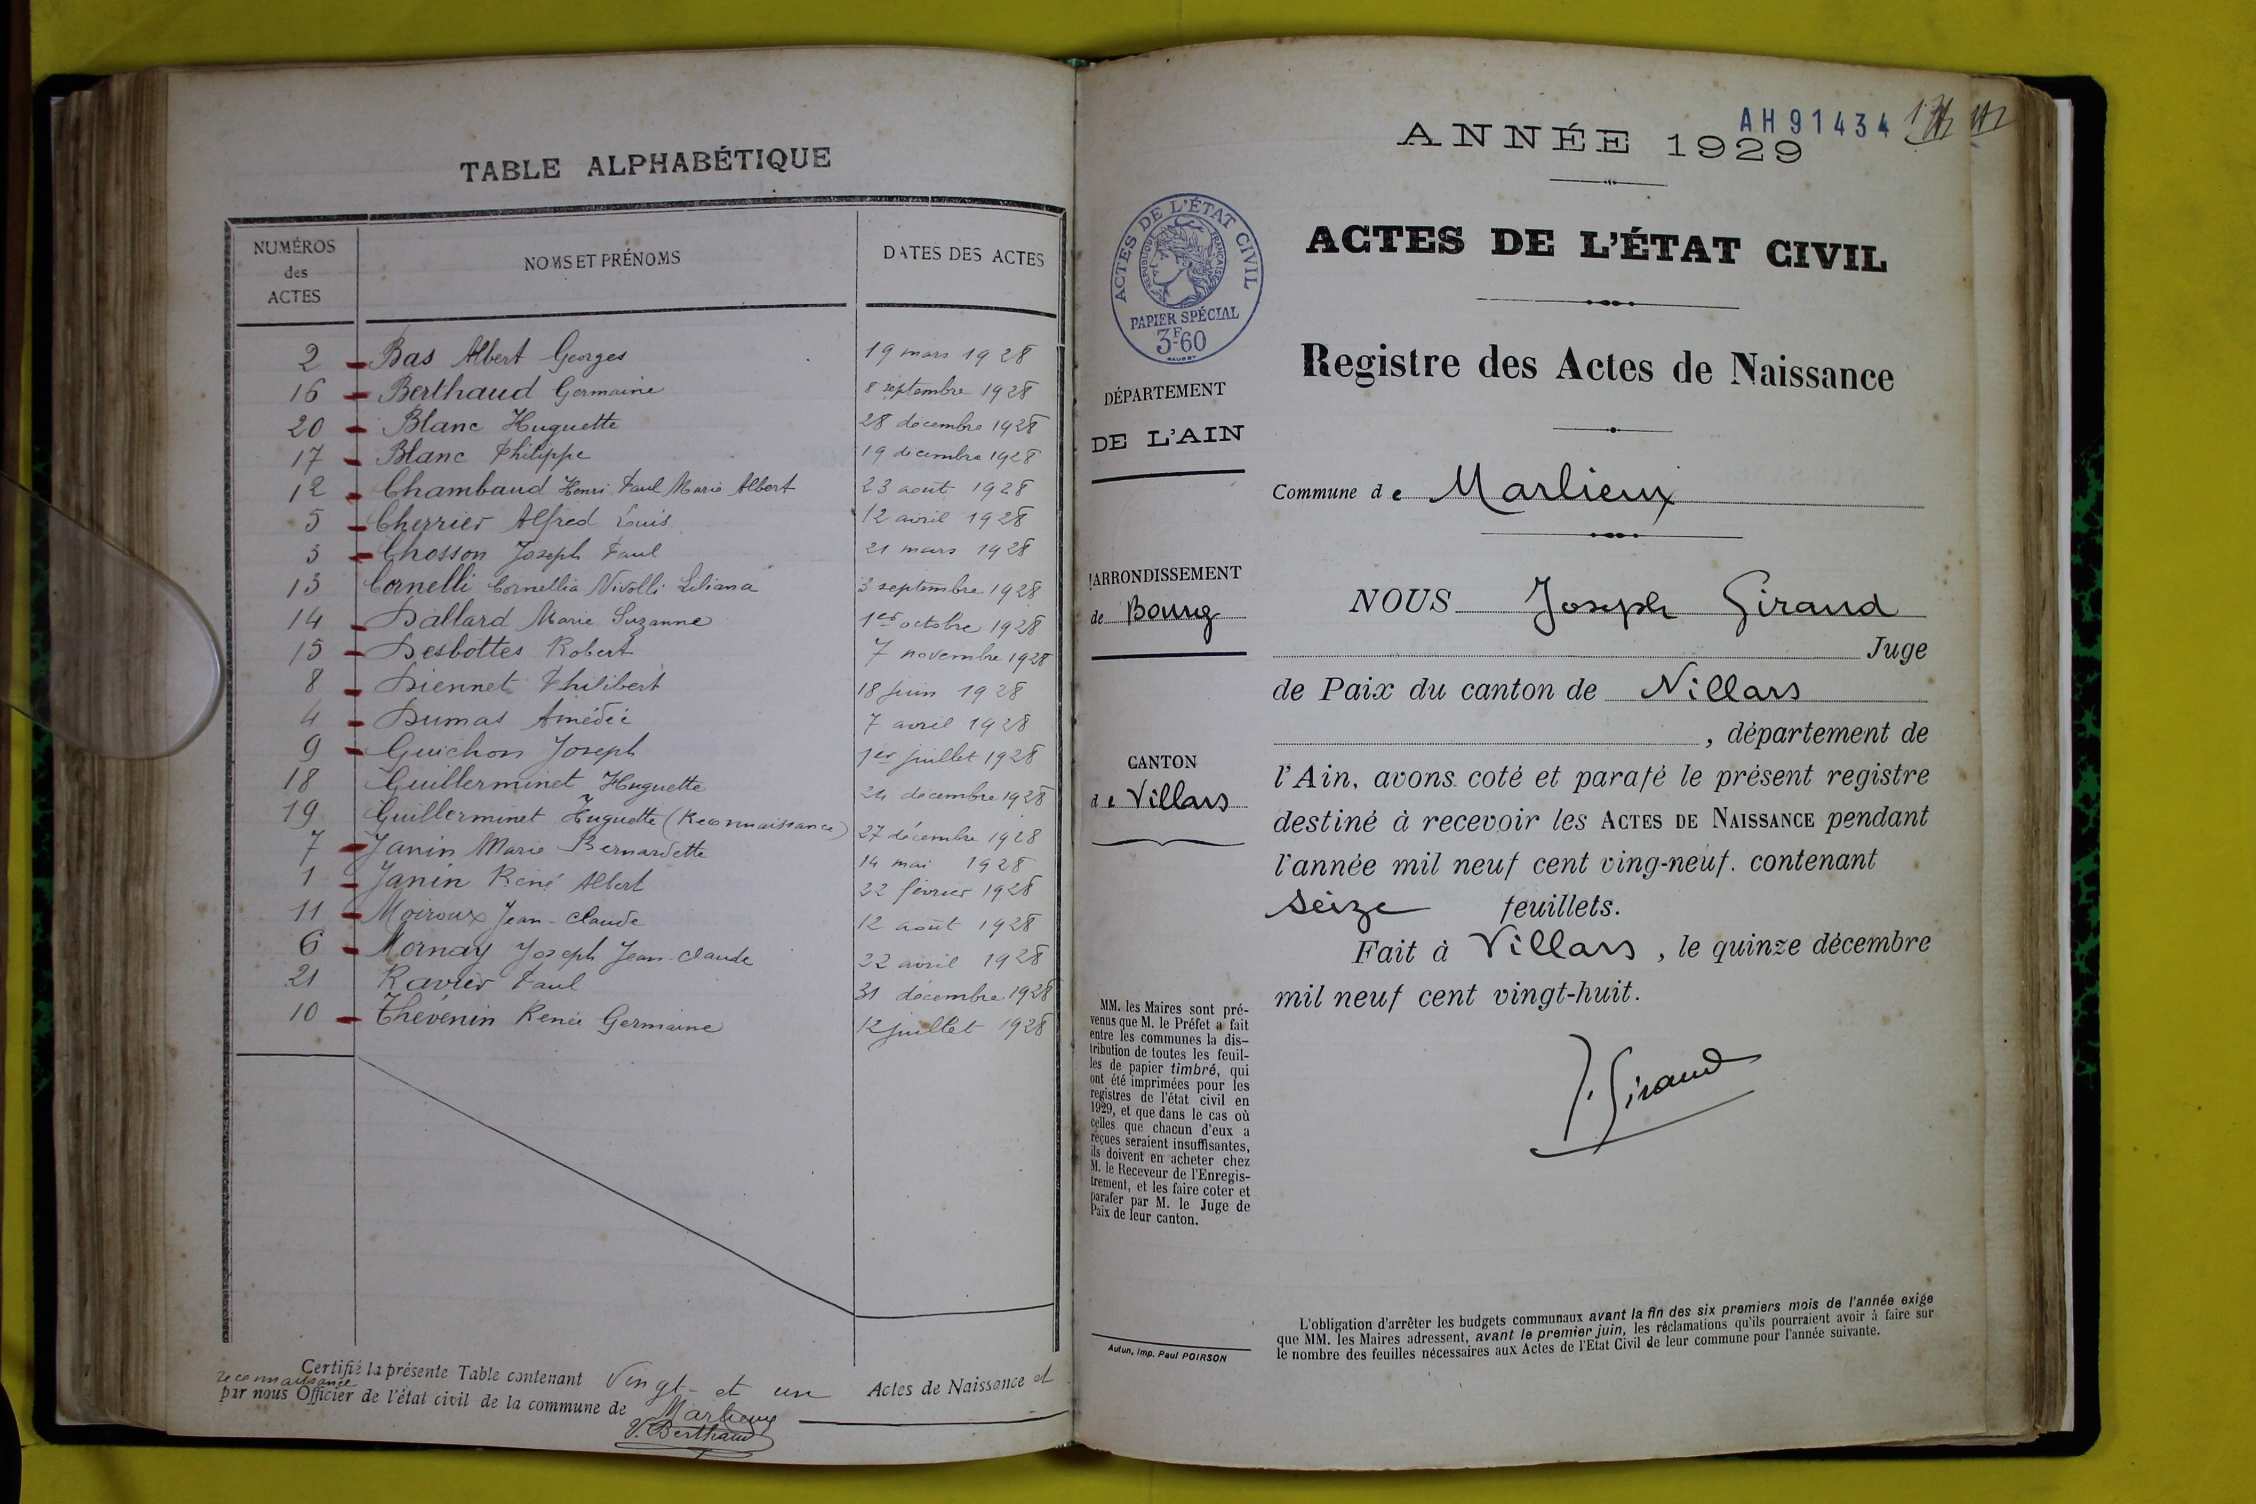 TABLE ALPHABÉTIQUE
NUMÉROS des ACTES
NOMS ET PRÉNOMS
DATES DES ACTES
2 Bas Albert Georges 19 mars 1928
16 Berthaud Germaine 8 septembre 1928
20 Blanc Huguette 28 décembre 1928
17 Blanc Philippe 19 décembre 1928
12 Chambaud Henri Paul Marie Albert 23 août 1928
5 Cherrier Alfred Louis 12 avril 1928
3 Chosson Joseph Paul 21 mars 1928
13 Cornelli Cornellia Nivolli Liliana 3 septembre 1928
14 Dallard Marie Suzanne 1er octobre 1928
15 Desbottes Robert 7 novembre 1928
8 Diennet Philibert 18 juin 1928
4 Dumas Amédée 7 avril 1928
9 Guichon Joseph 1er juillet 1928
18 Guillerminet Huguette 24 décembre 1928
19 Guillerminet Huguette (Reconnaissance) 27 décembre 1928
7 Janin Marie Bernardette 14 mai 1928
1 Janin René Albert 22 février 1928
11 Moiroux Jean-Claude 12 août 1928
6 Mornay Joseph Jean-Claude 22 avril 1928
21 Ravier Paul 31 décembre 1928
10 Thévenin Renée Germaine 12 juillet 1928
Certifié la présente Table contenant Vingt-et un Actes de Naissance et
reconnaissance
par nous Officier de l'état civil de la commune de Marlieux
V. Berthaud
AH91434
ANNÉE 1929
ACTES DE L'ÉTAT CIVIL
RÉPUBLIQUE FRANÇAISE
PAPIER SPÉCIAL
3F60
DÉPARTEMENT
DE L'AIN
ARRONDISSEMENT
de Bourg
CANTON
de Villars
MM. les Maires sont pré-
venus que M. le Préfet a fait
entre les communes la dis-
tribution de toutes les feuil-
les de papier timbré, qui
ont été imprimées pour les
registres de l'état civil en
1929, et que dans le cas où
celles que chacun d'eux a
reçues seraient insuffisantes,
ils doivent en acheter chez
M. le Receveur de l'Enregis-
trement, et les faire coter et
parafer par M. le Juge de
Paix de leur canton.
Autun, Imp. Paul POIRSON
ACTES DE L'ÉTAT CIVIL
Registre des Actes de Naissance
Commune de Marlieux
NOUS Joseph Giraud
Juge
de Paix du canton de Villars
, département de
l'Ain, avons coté et parafé le présent registre
destiné à recevoir les ACTES DE NAISSANCE pendant
l'année mil neuf cent ving-neuf. contenant
seize feuillets.
Fait à Villars, le quinze décembre
mil neuf cent vingt-huit.
J. Giraud
L'obligation d'arrêter les budgets communaux avant la fin des six premiers mois de l'année exige
que MM. les Maires adressent, avant le premier juin, les réclamations qu'ils pourraient avoir à faire sur
le nombre des feuilles nécessaires aux Actes de l'Etat Civil de leur commune pour l'année suivante.